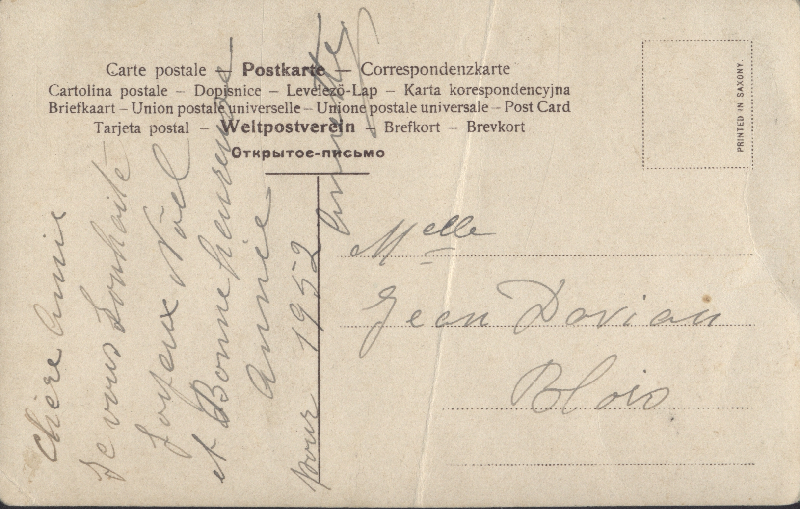 Carte postale – Postkarte – Correspondenzkarte
Cartolina postale – Dopisnice – Levelező-Lap – Karta korespondencyjna
Briefkaart – Union postale universelle – Unione postale universale – Post Card
Tarjeta postal – Weltpostverein – Brefkort – Brevkort
Открытое-письмо
PRINTED IN SAXONY.
Chère Annie
Je vous Souhaite
Joyeux Noël
et Bonne heureuse
Année
pour 1952
Annette
Melle
Geen Dorian
Blois